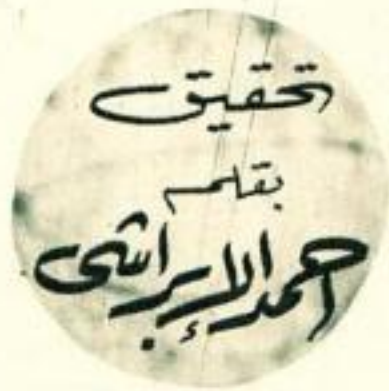 تحقيق
بقلم
احمد الإبراشى